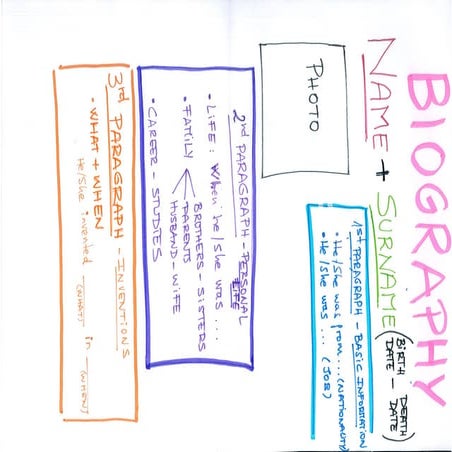 BIOGRAPHY
NAME + SURNAME (BIRTH DATE - DEATH DATE)
PHOTO
1st PARAGRAPH - BASIC INFORMATION
• He/She was from... (NATIONALITY)
• He/She was ... (JOB)
2nd PARAGRAPH - PERSONAL LIFE
• LIFE: When he/she was ....
• FAMILY
BROTHERS - SISTERS
PARENTS
HUSBAND - WIFE
• CAREER - STUDIES
3rd PARAGRAPH - INVENTIONS
• WHAT + WHEN
He/She invented __ (WHAT) in __ (WHEN)